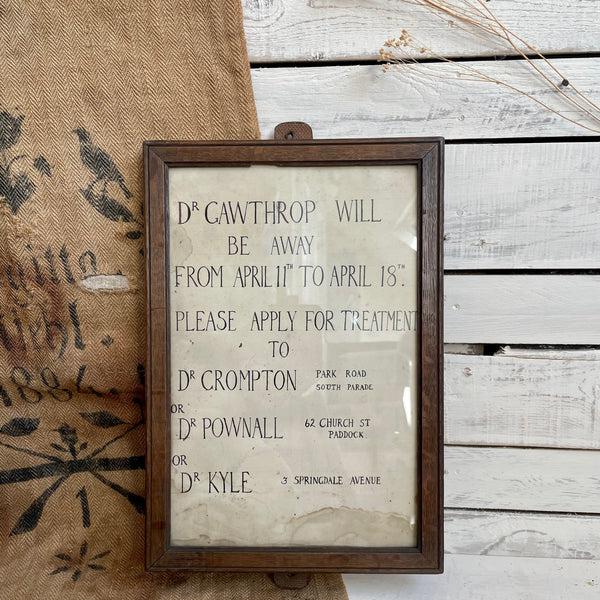 DR GAWTHROP WILL
BE AWAY
FROM APRIL 11TH TO APRIL 18TH.
PLEASE APPLY FOR TREATMENT
TO
DR CROMPTON PARK ROAD
SOUTH PARADE
OR
DR POWNALL 62 CHURCH ST
PADDOCK
OR
DR KYLE 3 SPRINGDALE AVENUE
1884
1